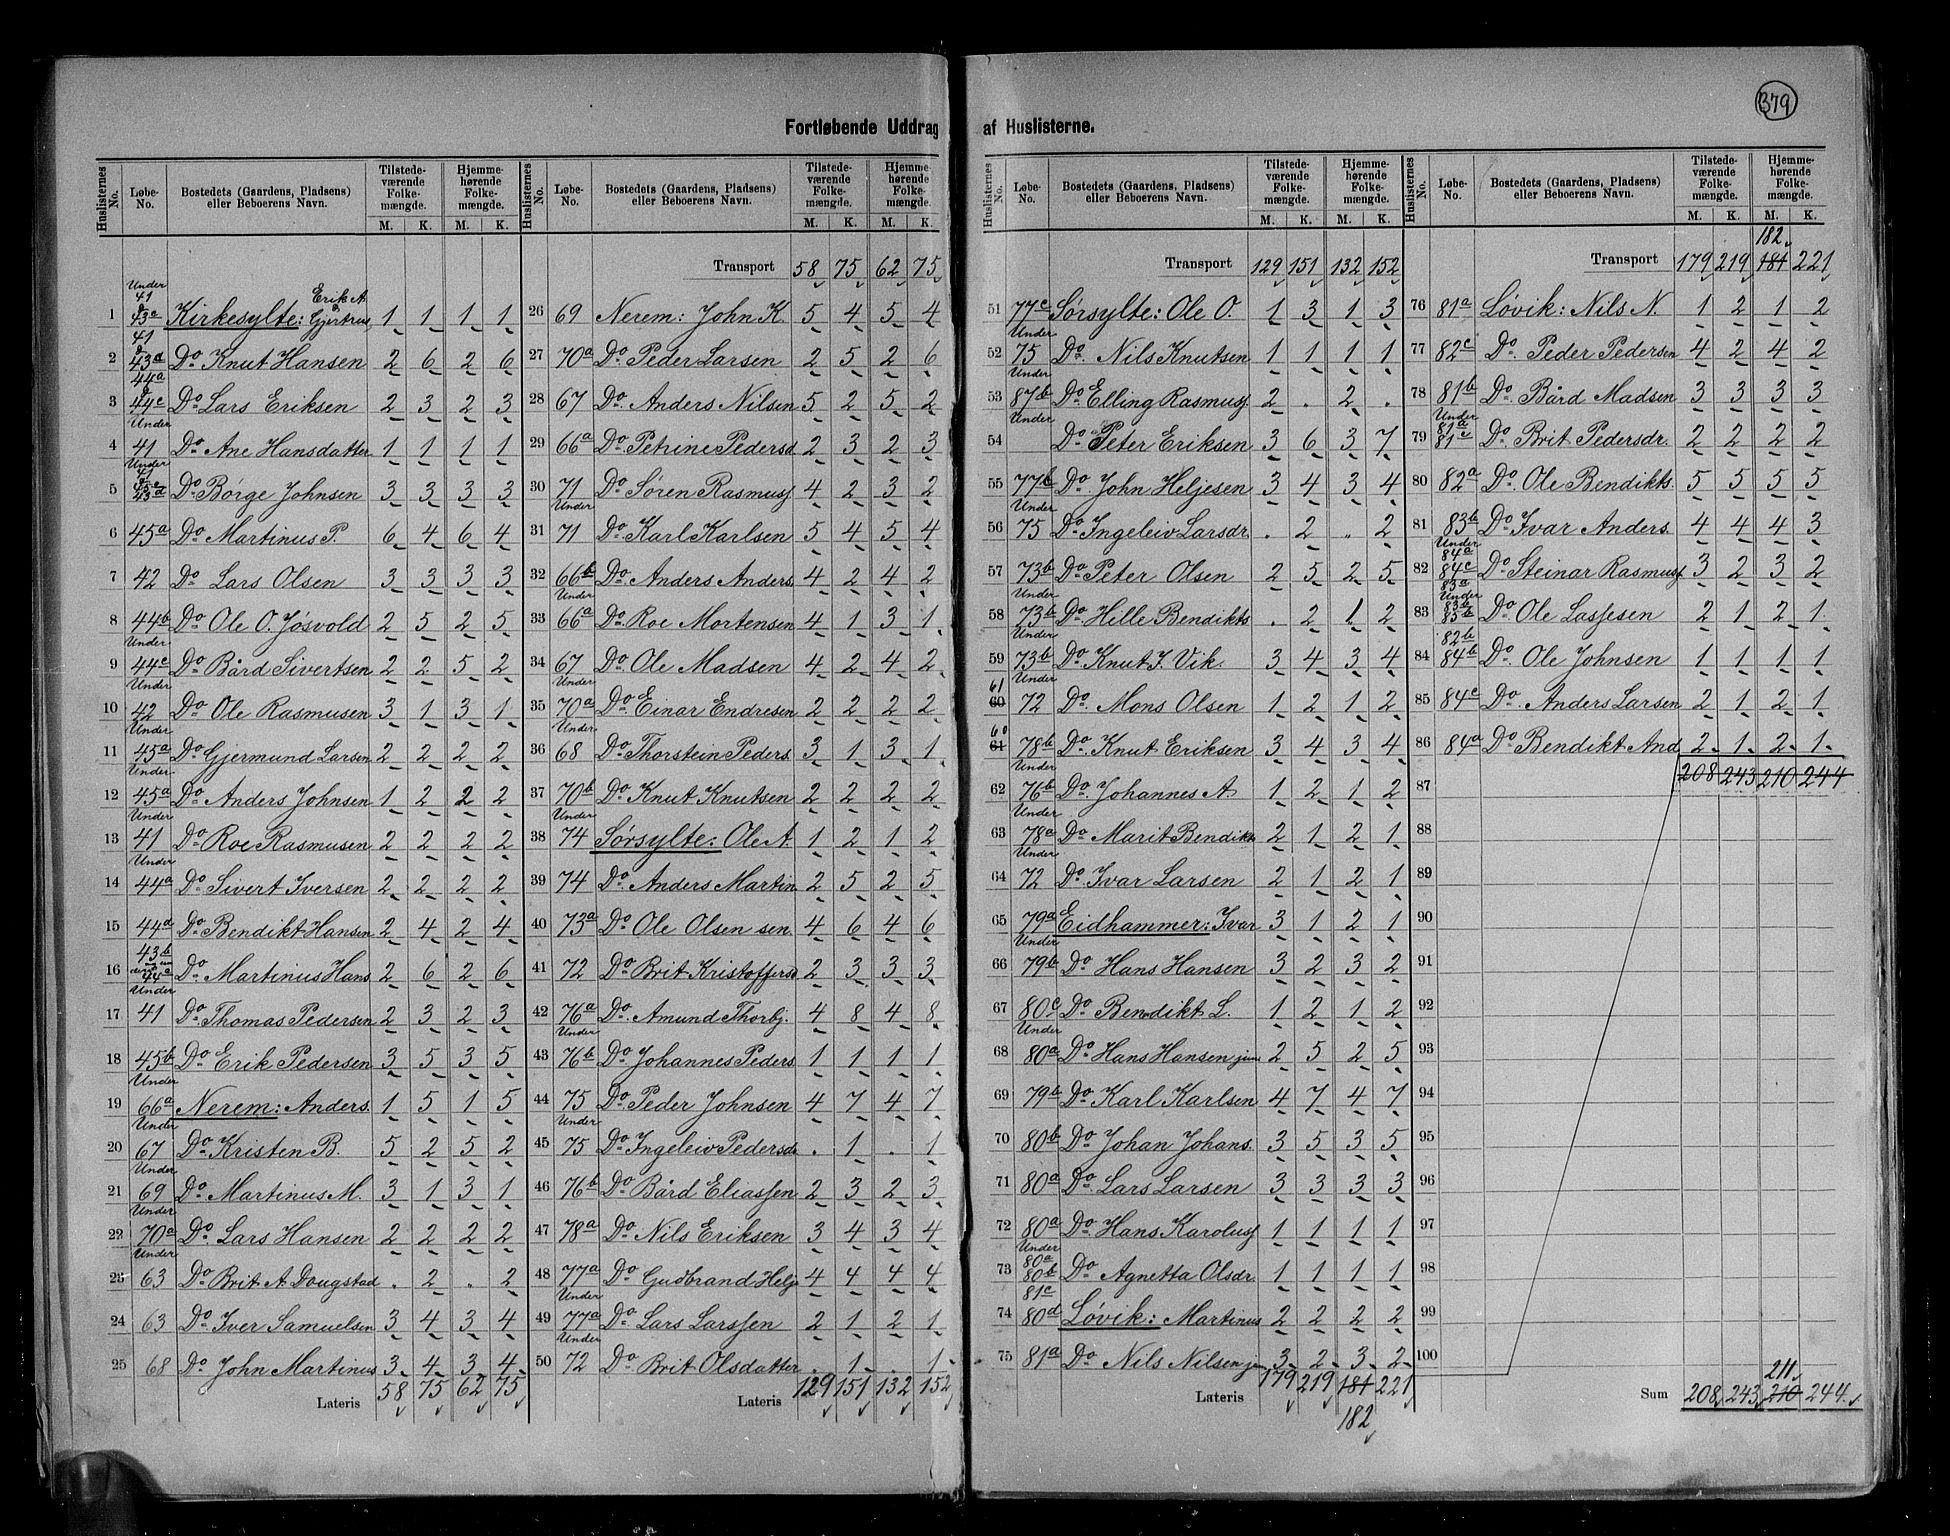 379
Fortløbende Uddrag af Huslisterne.
Huslisternes No. Løbe-No. Bostedets (Gaardens, Pladsens) eller Beboerens Navn. Tilstedeværende Folkemængde. M. K. Hjemmehørende Folkemængde. M. K.
1 Under 41 & 43c Kirkesylte: Erik A Gjertrus 1 1 1 1
2 41 & 43d Do Knut Hansen 2 6 2 6
3 44a & 44c Do Lars Eriksen 2 3 2 3
4 Under 41 Do Ane Hansdatter 1 1 1 1
5 Under 41 Do Børge Johnsen 3 3 3 3
6 45a Do Martinus P. 6 4 6 4
7 42 Do Lars Olsen 3 3 3 3
8 44b Do Ole O. Jøsvold 2 5 2 5
9 Under 44c Do Bård Sivertsen 2 2 5 2
10 Under 42 Do Ole Rasmusen 3 1 3 1
11 Under 45a Do Gjermund Larsen 2 2 2 2
12 Under 45a Do Anders Johnsen 1 2 2 2
13 Under 41 Do Roe Rasmusen 2 2 2 2
14 Under 44a Do Sivert Iversen 2 2 2 2
15 44d Do Bendikt Hansen 2 4 2 4
16 43b Do Martinus Hans. 2 6 2 6
17 Under 41 Do Thomas Pedersen 2 3 2 3
18 45b Do Erik Pedersen 3 5 3 5
19 Under 66a Nerem: Anders. 1 5 1 5
20 Under 67 Do Kristen B. 5 2 5 2
21 Under 69 Do Martinus M. 3 1 3 1
22 Under 70a Do Lars Hansen 2 2 2 2
23 Under 63 Do Brit A. Dougstad . 2 . 2
24 63 Do Iver Samuelsen 3 4 3 4
25 68 Do John Martinus 3 4 3 4
Lateris 58 75 62 75
Huslisternes No. Løbe-No. Bostedets (Gaardens, Pladsens) eller Beboerens Navn. Tilstedeværende Folkemængde. M. K. Hjemmehørende Folkemængde. M. K.
Transport 58 75 62 75
26 69 Nerem: John K. 5 4 5 4
27 70a Do Peder Larsen 2 5 2 6
28 67 Do Anders Nilsen 5 2 5 2
29 66a Do Petrine Pedersd 2 3 2 3
30 71 Do Søren Rasmusf 4 2 3 2
31 Under 71 Do Karl Karlsen 5 4 5 4
32 66b Do Anders Anders. 4 2 4 2
33 Under 66a Do Roe Mortensen 4 1 3 1
34 67 Do Ole Madsen 4 2 4 2
35 Under 70a Do Einar Endresen 2 2 2 2
36 Under 68 Do Thorstein Peders. 3 1 3 1
37 70b Do Knut Knutsen 2 2 2 2
38 Under 74 Sørsylte: Ole A. 1 2 1 2
39 74 Do Anders Martin 2 5 2 5
40 73a Do Ole Olsen sen. 4 6 4 6
41 72 Do Brit Kristoffersd 2 3 3 3
42 76a Do Amund Thorbj. 4 8 4 8
43 Under 76b Do Johannes Peders 1 1 1 1
44 75 Do Peder Johnsen 4 7 4 7
45 Under 75 Do Ingeleiv Pedersdr . 1 . 1
46 76b Do Bård Eliassen 2 3 2 3
47 78a Do Nils Eriksen 3 4 3 4
48 77a Do Gudbrand Helj. 4 4 4 4
49 Under 77a Do Lars Larssen 2 1 2 1
50 Under 72 Do Brit Olsdatter . 1 . 1
Lateris 129 151 132 152
Huslisternes No. Løbe-No. Bostedets (Gaardens, Pladsens) eller Beboerens Navn. Tilstedeværende Folkemængde. M. K. Hjemmehørende Folkemængde. M. K.
Transport 129 151 132 152
51 77c Sørsylte: Ole O. 1 3 1 3
52 Under 75 Do Nils Knutsen 1 1 1 1
53 Under 87b Do Elling Rasmusf 2 . 2 .
54 Under Do Peter Eriksen 3 6 3 7
55 77b Do John Heljesen 3 4 3 4
56 Under 75 Do Ingeleiv Larsdr. . 2 . 2
57 73b Do Peter Olsen 2 5 2 5
58 Under 73b Do Hille Bendikts . 2 1 2
59 Under 73b Do Knut I. Vik. 3 4 3 4
61 60 Under 72 Do Mons Olsen 1 2 1 2
60 61 78b Do Knut Eriksen 3 4 3 4
62 Under 76b Do Johannes A. 1 2 1 2
63 Under 78a Do Marit Bendikts 2 1 2 1
64 Under 72 Do Ivar Larsen 2 1 2 1
65 79a Eidhammer: Ivar 3 1 2 1
66 Under 79b Do Hans Hansen 3 2 3 2
67 80c Do Bendikt L. 1 2 1 2
68 Under 80a Do Hans Hansen jun 2 5 2 5
69 79b Do Karl Karlsen 4 7 4 7
70 80b Do Johan Johans. 3 5 3 5
71 80a Do Lars Larsen 3 3 3 3
72 80a Do Hans Karolusf 1 1 1 1
73 Under 80a 80b Do Agnetta Olsdr. 1 1 1 1
74 81c 80d Løvik: Martinus 2 2 2 2
75 81a Do Nils Nilsen jun 3 2 3 2
Lateris 179 219 181 221
182
Huslisternes No. Løbe-No. Bostedets (Gaardens, Pladsens) eller Beboerens Navn. Tilstedeværende Folkemængde. M. K. Hjemmehørende Folkemængde. M. K.
182
Transport 179 219 181 221
76 81a Løvik: Nils N. 1 2 1 2
77 82c Do Peder Pedersen 4 2 4 2
78 81b Do Bård Madsen 3 3 3 3
79 Under 81a 81c Do Brit Pedersdr. 2 2 2 2
80 82a Do Ole Bendikts. 5 5 5 5
81 83b Do Ivar Anders. 4 4 4 3
82 Under 84a 84c 83a Do Steinar Rasmusf 3 2 3 2
83 Under 83b Do Ole Lassesen 2 1 2 1
84 82b 84b Do Ole Johnsen 1 1 1 1
85 84c Do Anders Larsen 2 1 2 1
86 84a Do Bendikt And 2 1 2 1
208 243 210 244
87
88
89
90
91
92
93
94
95
96
97
98
99
100
211
Sum 208 243 210 244